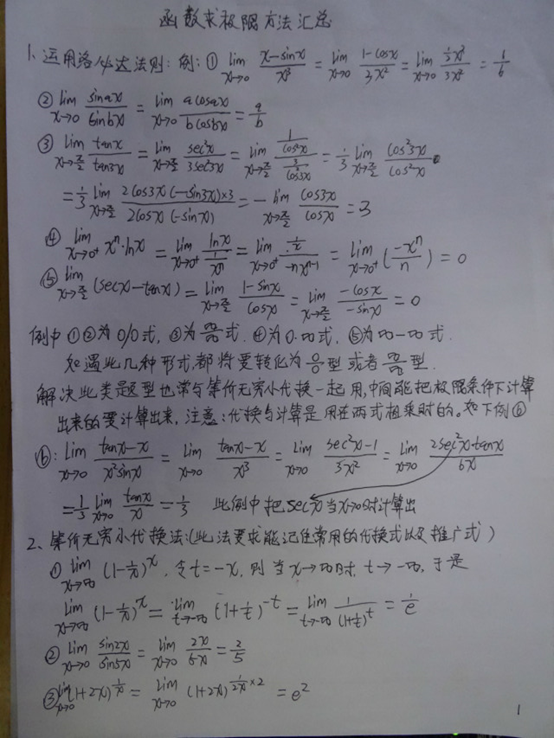 函数求极限方法汇总
1、运用洛必达法则：例：① lim x→0 (x-sinx)/x³ = lim x→0 (1-cosx)/3x² = lim x→0 (½x²)/3x² = 1/6
② lim x→0 sinax/sinbx = lim x→0 acosax/bcosbx = a/b
③ lim x→π/2 tanx/tan3x = lim x→π/2 sec²x/3sec²3x = lim x→π/2 (1/cos²x)/(3/cos²3x) = 1/3 lim x→π/2 cos²3x/cos²x
= 1/3 lim x→π/2 2cos3x(-sin3x)×3/2cosx(-sinx) = - lim x→π/2 cos3x/cosx = 3
④ lim x→0⁺ xⁿ·lnx = lim x→0⁺ lnx/(1/xⁿ) = lim x→0⁺ (1/x)/(-nx⁻ⁿ⁻¹) = lim x→0⁺ (-xⁿ/n) = 0
⑤ lim x→π/2 (secx-tanx) = lim x→π/2 (1-sinx)/cosx = lim x→π/2 -cosx/-sinx = 0
例中①②为0/0式，③为∞/∞式，④为0·∞式，⑤为∞-∞式.
如遇此几种形式,都将要转化为0/0型或者∞/∞型.
解决此类题型也常与等价无穷小代换一起用,中间能把极限条件下计算
出来的要计算出来，注意：代换与计算是用在两式相乘时的。如下例⑥
⑥: lim x→0 (tanx-x)/x²sinx = lim x→0 (tanx-x)/x³ = lim x→0 (sec²x-1)/3x² = lim x→0 2sec²x·tanx/6x
= 1/3 lim x→0 tanx/x = 1/3 此例中把secx当x→0时计算出
2、等价无穷小代换法：(此法要求能记住常用的代换式以及推广式)
① lim x→∞ (1-1/x)ˣ，令t=-x，则当x→∞时，t→-∞，于是
lim x→∞ (1-1/x)ˣ = lim t→-∞ (1+1/t)⁻ᵗ = lim t→-∞ 1/(1+1/t)ᵗ = 1/e
② lim x→0 sin2x/sin5x = lim x→0 2x/5x = 2/5
③ lim x→0 (1+2x)^(1/x) = lim x→0 (1+2x)^(1/2x ×2) = e²
1